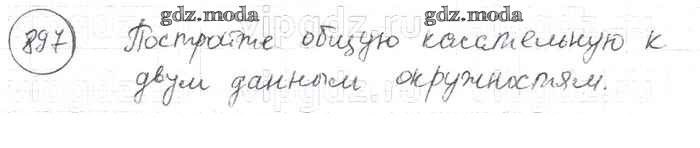 gdz.moda gdz.moda gdz.moda
897 Постройте общую касательную к
двум данным окружностям.